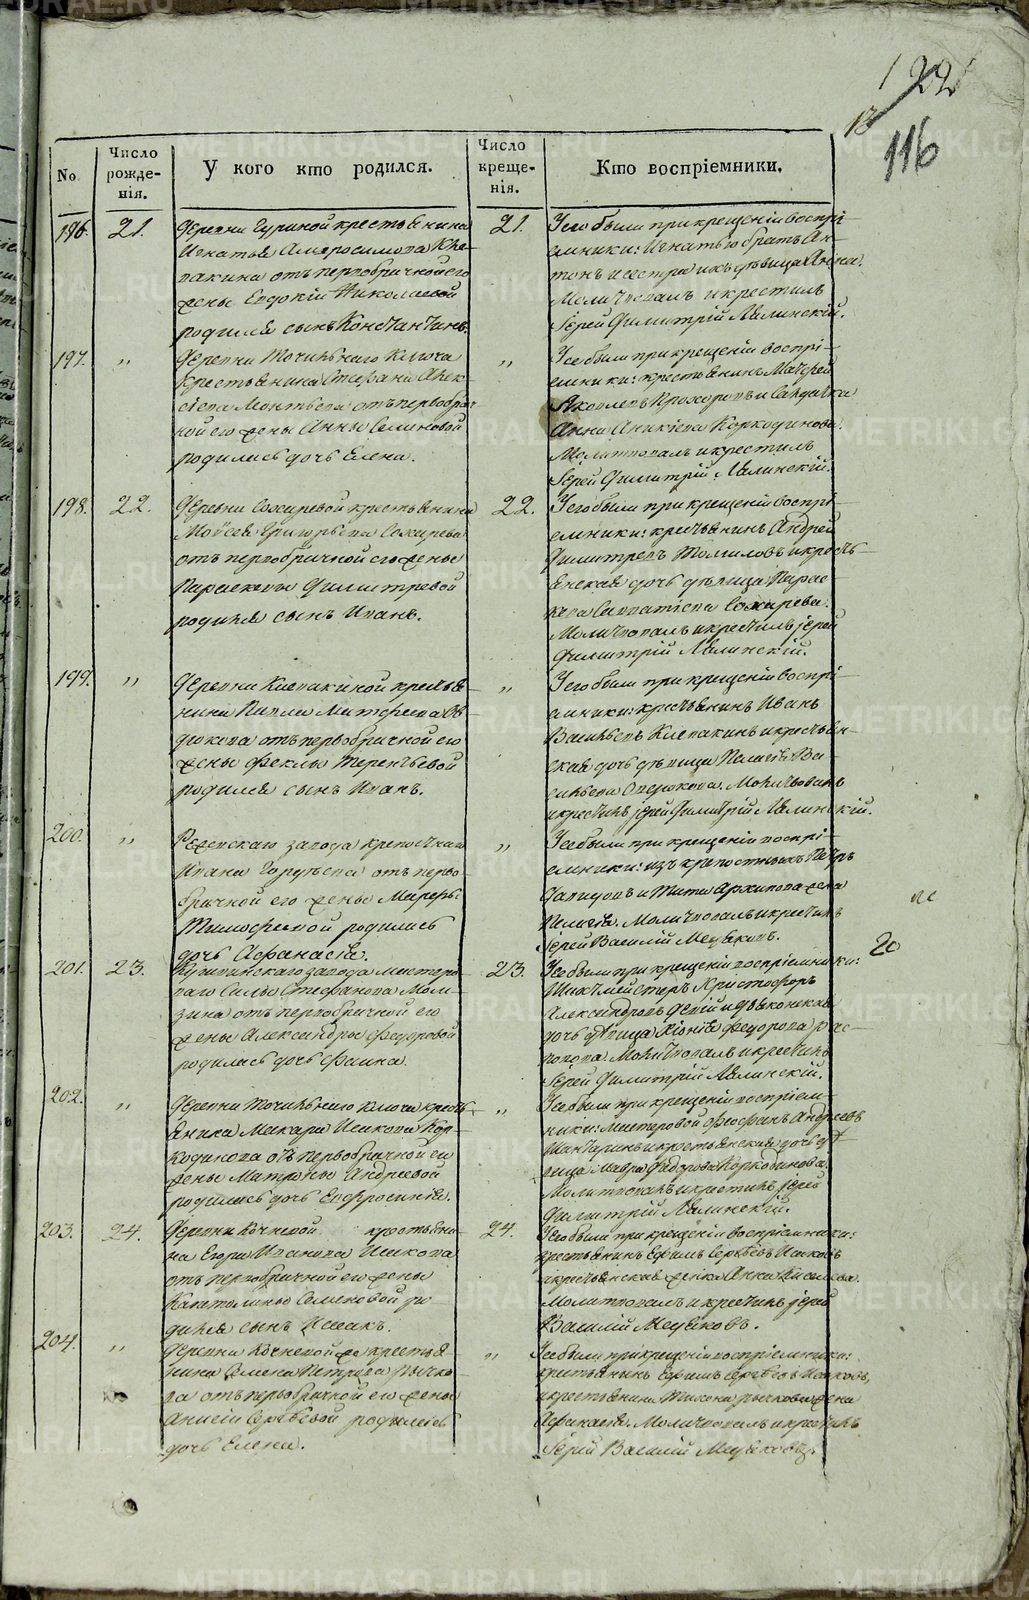 122
13
116
No.
Число рожде-нія.
У кого кто родился.
Число креще-нія.
Кто воспріемники.
196.
21.
Деревни Гуриной крестьянина
Игнатья
пакина отъ первобрачной его
жены Евдокіи Николаевой
родился сынъ Константинъ.
21.
У его были при крещеніи воспрі-
емники: Игнатью братъ Ан-
тонъ и сестра ихъ дѣвица Анна.
Молитвовалъ и крестилъ
Іерей Димитрій Малинскій.
197.
"
Деревни Точильнаго Ключа
крестьянина Стефана Алек-
сіева отъ первобрач-
ной его жены Анны Семеновой
родилась дочь Елена.
"
У ее были при крещеніи воспрі-
емники: крестьянинъ Матфей
Яковлевъ Прохоровъ и Салдатка
Анна Аникіева Коркодинова.
Молитвовалъ и крестилъ
Іерей Димитрій Малинскій.
198.
22.
Деревни Сажиревой крестьянина
Моѵсея Григорьева Сажирева
отъ первобрачной его жены
Параскевы Димитревой
родился сынъ Иванъ.
22.
У его были при крещеніи воспрі-
емники: крестьянинъ Андрей
Димитревъ Томиловъ и кресть-
янская дочь дѣвица Парас-
кева Савватіева Сажирева.
Молитвовалъ и крестилъ іерей
Димитрій Малинскій.
199.
"
Деревни Клепакиной крестья-
нина Павла Матфеева Ов-
дюкова отъ первобрачной его
жены Феклы Терентьевой
родился сынъ Иванъ.
"
У его были при крещеніи воспрі-
емники: крестьянинъ Иванъ
Васильевъ Клепакинъ и крестьян-
ская дочь дѣвица Пелагія Ва-
сильева Молитвовалъ
и крестилъ іерей Димитрій Малинскій.
200.
"
Режевскаго завода крепостнаго
Ивана отъ перво-
брачной его жены
Тимофеевой родилась
дочь Афанасія.
"
У ее были при крещеніи воспрі-
емники: изъ крепостныхъ Петръ
Давидовъ и Тита Архипова жена
Пелагія. Молитвовалъ и крестилъ
Іерей Василій
20
201.
23.
завода мастеро-
ваго Силы Стефанова Мои-
зина отъ первобрачной его
жены Александры Федоровой
родилась дочь Фаина.
23.
У ее были при крещеніи воспріемники:
Шихтмейстеръ Христофоръ
Александровъ и дьяконская
дочь дѣвица Хіонія Федорова Рас-
попова. Молитвовалъ и крестилъ
Іерей Димитрій Малинскій.
202.
"
Деревни Точильнаго Ключа кресть-
янина Макара Исакова Кор-
кодинова отъ первобрачной его
жены Матроны Андреевой
родилась дочь Евфросинія.
"
У ее были при крещеніи воспріем-
ники: мастеровой Феофанъ Андреевъ
и крестьянская дочь дѣ-
вица Мавра Федорова Коркодинова.
Молитвовалъ и крестилъ іерей
Димитрій Малинскій.
203.
24.
Деревни Кочневой крестьяни-
на Егора Иванова Исакова
отъ первобрачной его жены
Капетолины Семеновой ро-
дился сынъ Исаакъ.
24.
У его были при крещеніи воспріемники:
крестьянинъ Ефимъ Сергѣевъ Исаковъ
и крестьянская Анна Киселева.
Молитвовалъ и крестилъ іерей
Василій
204.
"
Деревни Кочневой же крестья-
нина Семена Петрова Рычко-
ва отъ первобрачной его жены
Анисіи Сергѣевой родилась
дочь Елена.
"
У ее были при крещеніи воспріемники:
крестьянинъ Ефимъ Сергѣевъ Исаковъ,
и крестьянина Тихона Рычкова жена
Афанасія. Молитвовалъ и крестилъ
Іерей Василій
METRIKI.GASO-URAL.RU